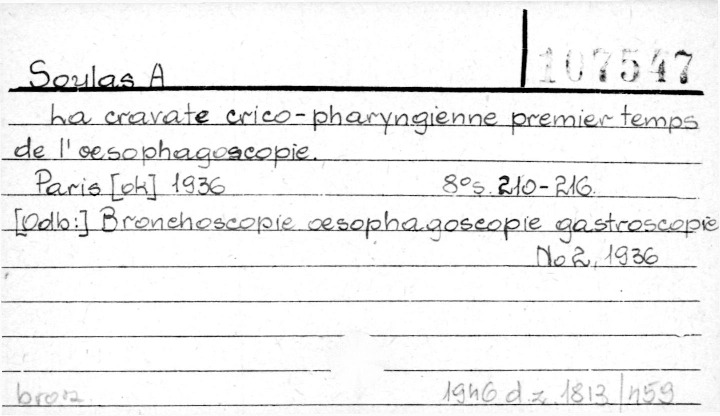 107547
Soulas A
La cravate crico-pharyngienne premier temps
de l'oesophagoscopie.
Paris [ok] 1936 8°s. 210-216.
[Odb:] Bronchoscopie oesophagoscopie gastroscopie
No 2, 1936
brosz 1946 d. z. 1813/459